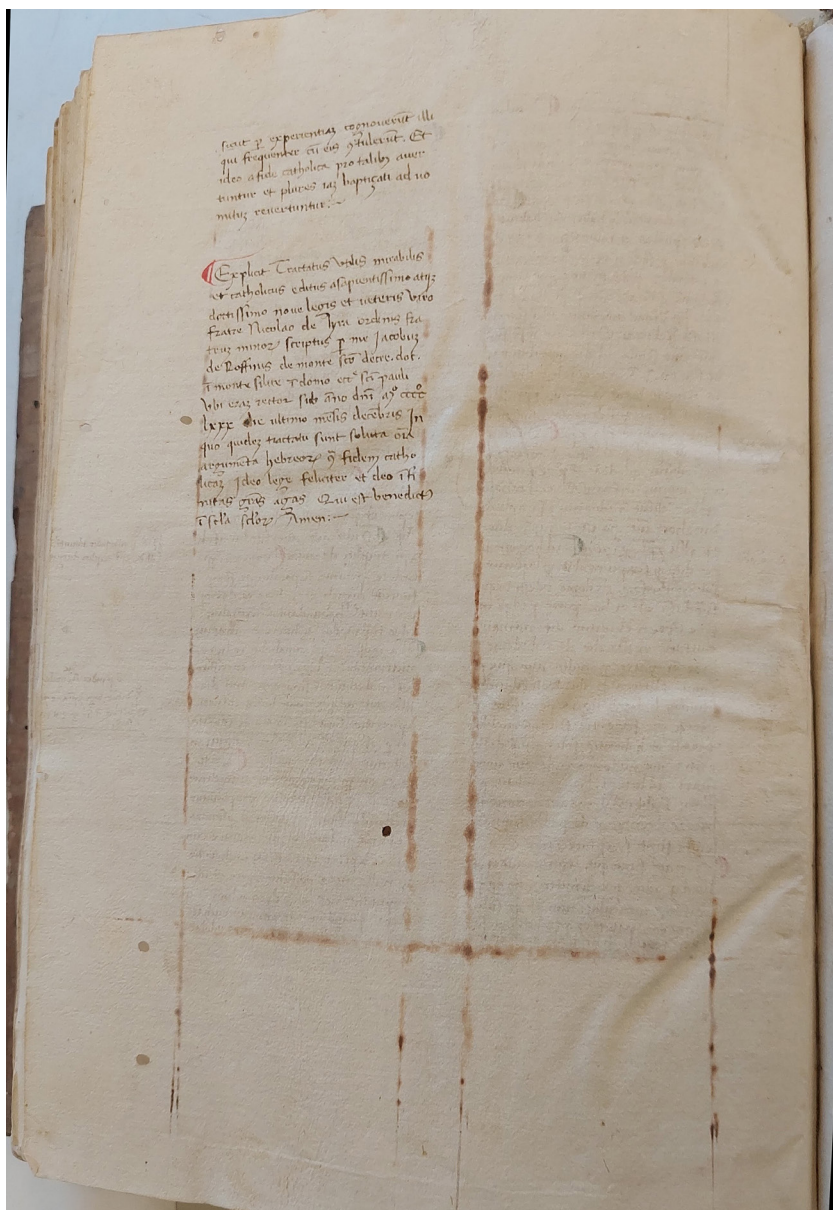 sicut ꝑ experientiaꝫ cognoverūt illi
qui frequenter cū eis ꝯtulerūt. Et
ideo a fide catholica pro talibꝫ aver
tuntur et plures iaꝫ baptiçati ad vo
mituꝫ revertuntur:~
¶ Explicit Tractatus vtilis mirabilis
et catholicus editus a sapientissimo atqꝫ
doctissimo nove legis et veteris viro
fratre Nicolao de lyra ordinis fra
truꝫ minoꝝ scriptus ꝑ me Jacobuꝫ
de Roffinis de monte sctō decre. dot.
ī monte silice ī domo eccͤ sctī pauli
vbi eraꝫ rector sub āno dnī Mͦ ccccͦ
lxxx die ultimo mēsis decēbris In
quo quideꝫ tractatu sunt soluta oīa
argumēta hebreoꝝ ꝯ fidem catho
licaꝫ Ideo lege feliciter et deo īfi
nitas grās agas Qui est benedictꝰ
ī sclā scloꝝ Amen:~